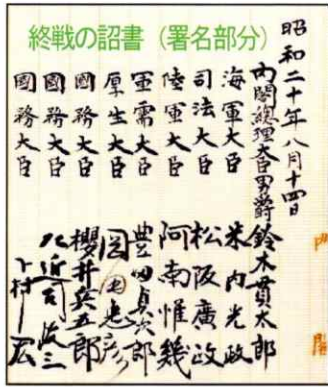 終戦の詔書（署名部分）
昭和二十年八月十四日
内閣總理大臣男爵鈴木貫太郎
海軍大臣 米内光政
司法大臣 松阪廣政
陸軍大臣 阿南惟幾
軍需大臣 豊田貞次郎
厚生大臣 岡田忠彦
國務大臣 櫻井兵五郎
國務大臣 左近司政三
國務大臣 下村宏
内閣